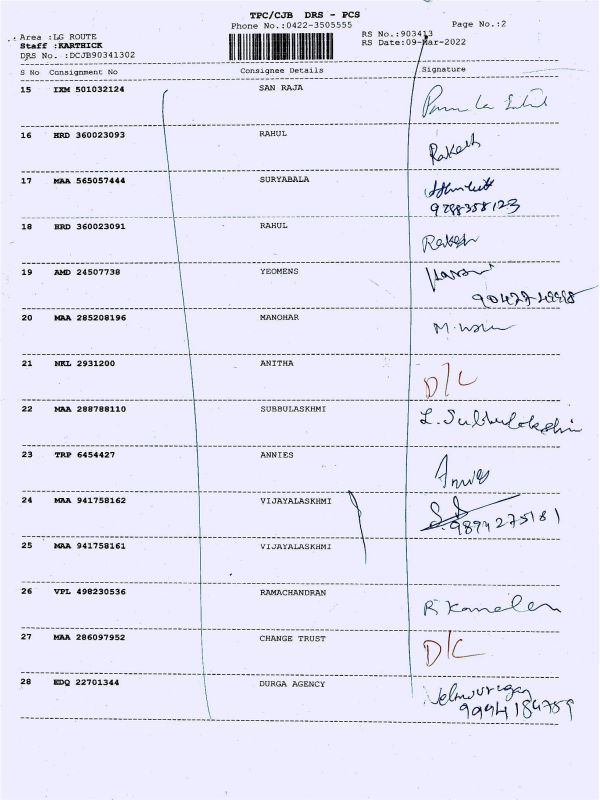 TPC/CJB DRS - PCS
Phone No.:0422-3505555 Page No.:2
Area :LG ROUTE RS No.:903413
Staff :KARTHICK RS Date:09-Mar-2022
DRS No. :DCJB90341302
S No Consignment No Consignee Details Signature
15 IXM 501032124 SAN RAJA
16 HRD 360023093 RAHUL Rakesh
17 MAA 565057444 SURYABALA
9788358123
18 HRD 360023091 RAHUL Rakesh
19 AMD 24507738 YEOMENS
20 MAA 285208196 MANOHAR
21 NKL 2931200 ANITHA D/C
22 MAA 288788110 SUBBULASKHMI L. Subbulakshmi
23 TRP 6454427 ANNIES Annies
24 MAA 941758162 VIJAYALASKHMI
9894275181
25 MAA 941758161 VIJAYALASKHMI
26 VPL 498230536 RAMACHANDRAN
27 MAA 286097952 CHANGE TRUST D/C
28 EDQ 22701344 DURGA AGENCY Velmurugan
9994184759